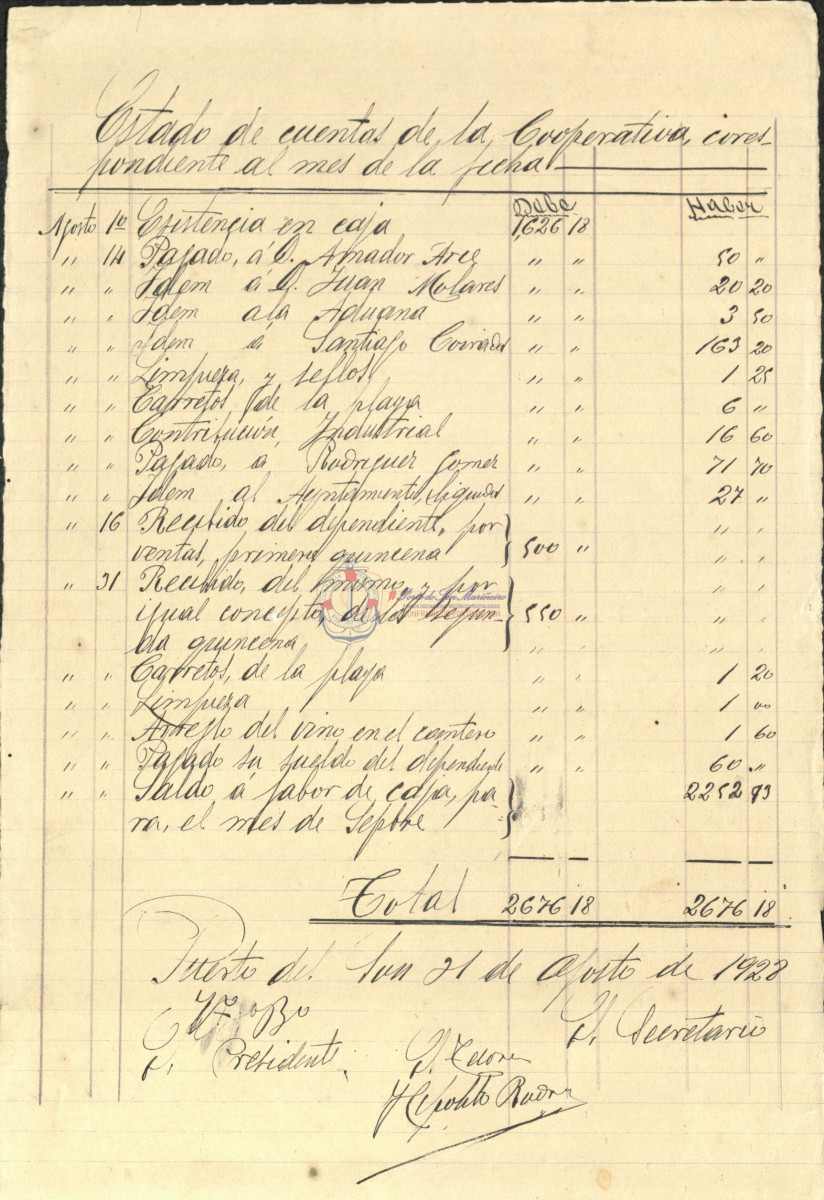 Estado de cuentas de la Cooperativa, cores-
pondiente al mes de la fecha
Debe Haber
Agosto 1º Esistencia en caja 1,626 18
" 14 Pagado, á D. Amador Arce " " 50 "
" " Idem á D. Juan Molares " " 20 20
" " Idem a la Aduana " " 3 50
" " Idem á Santiago " " 163 20
" " Limpieza, y sellos " " 1 25
" " Carretos, de la playa " " 6 "
" " Contribución, Industrial " " 16 60
" " Pagado, á Rodriguez Gomez " " 71 70
" " Idem al Ayuntamiento, " " 27 "
" 16 Recibido del dependiente, por " "
ventas, primera quincena } 500 " " "
" 31 Recibido, del mismo, y por " "
igual concepto, de la segun- } 550 " " "
da quincena " " " "
" " Carretos, de la playa " " 1 20
" " Limpieza " " 1 00
" " Arreglo del vino en el " " 1 60
" " Pagado su sueldo del dependiente " " 60 "
" " Saldo á fabor de caja, pa- } 2252 93
ra, el mes de Sepbre
Total 2676 18 2676 18
Puerto del Son 31 de Agosto de 1928
Vº Bº
El Presidente El Secretario
Hipolito Rodrz